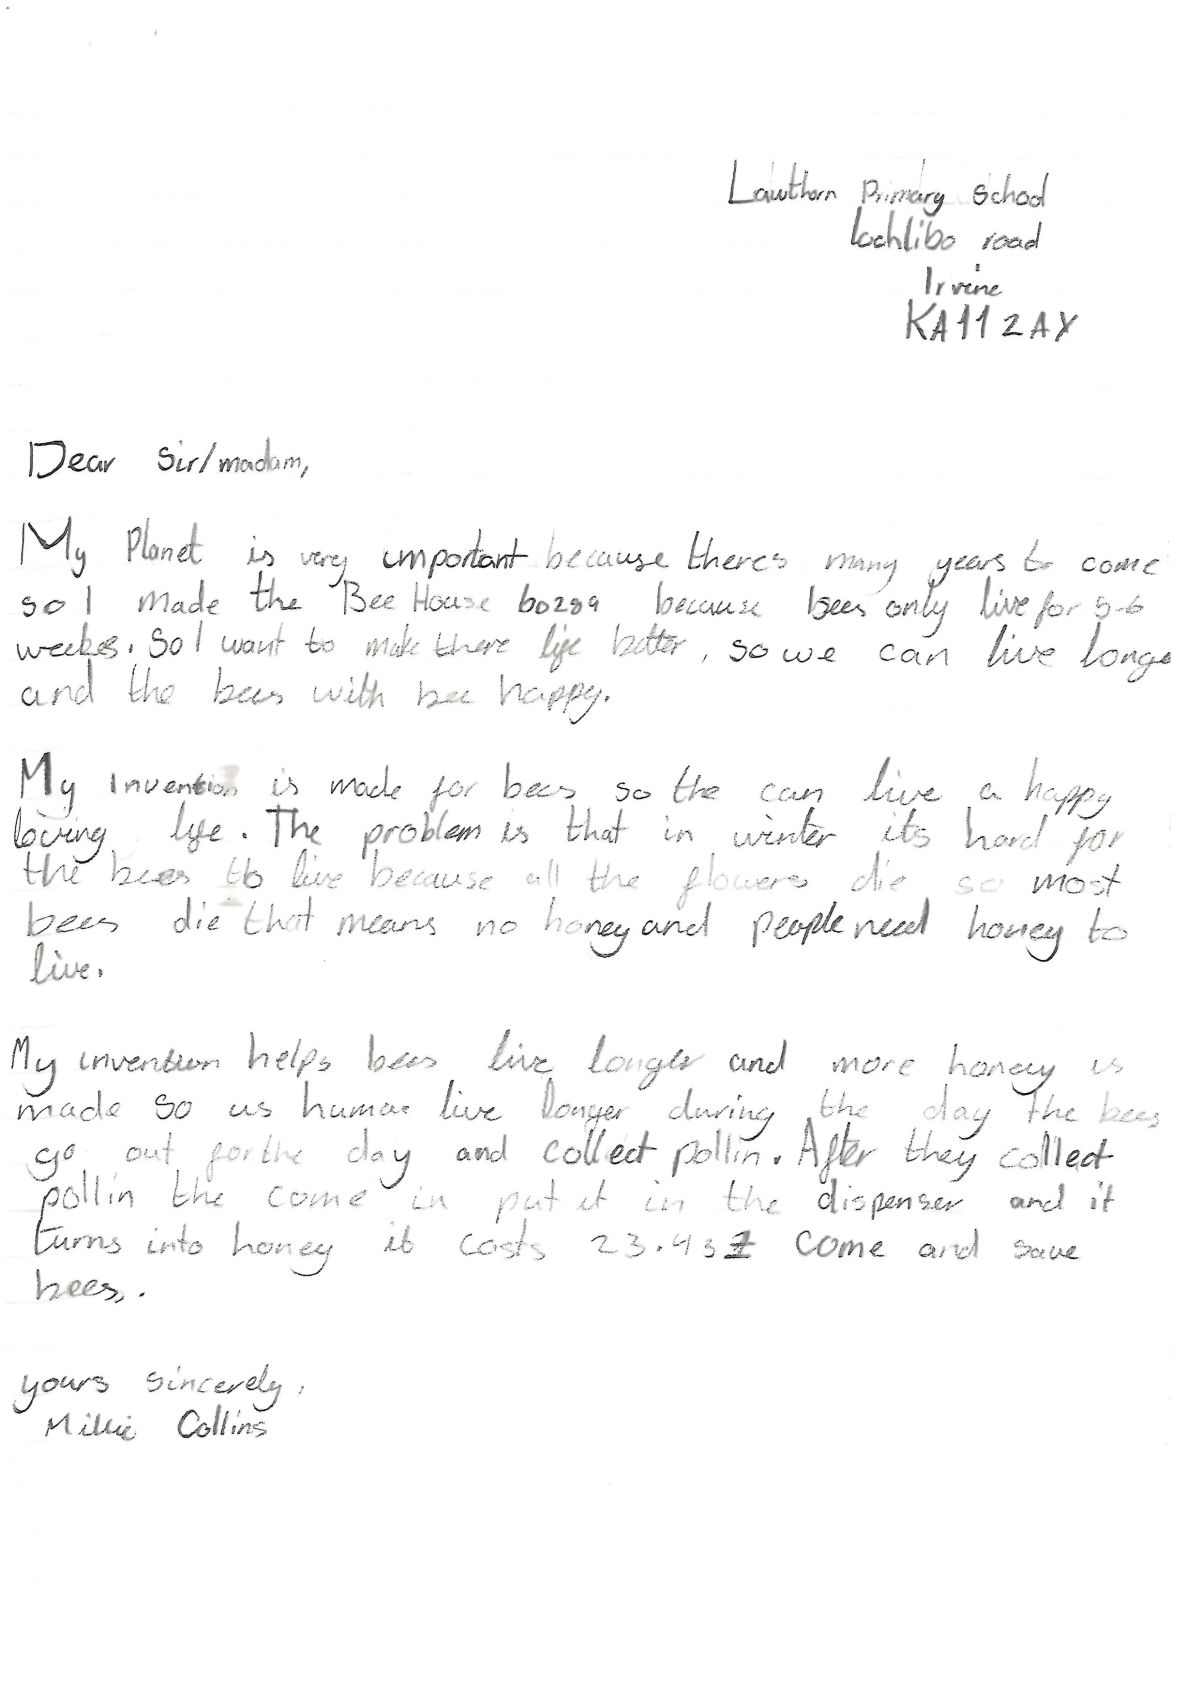 Lawthorn Primary School
Lochlibo road
Irvine
KA11 2AX
Dear Sir/madam,
My Planet is very important because there's many years to come
so I made the Bee House bo289 because bees only live for 5-6
weekes. So I want to make there life better, so we can live longe
and the bees with bee happy.
My Invention is made for bees so the can live a happy
loving life. The problem is that in winter its hard for
the bees to live because all the flowers die so most
bees die that means no honey and people need honey to
live.
My invention helps bees live longer and more honey is
made so us human live longer during the day the bees
go out for the day and collect pollin. After they collect
pollin the come in put it in the dispenser and it
turns into honey it costs 23.43 come and save
bees.
yours sincerely,
Millie Collins